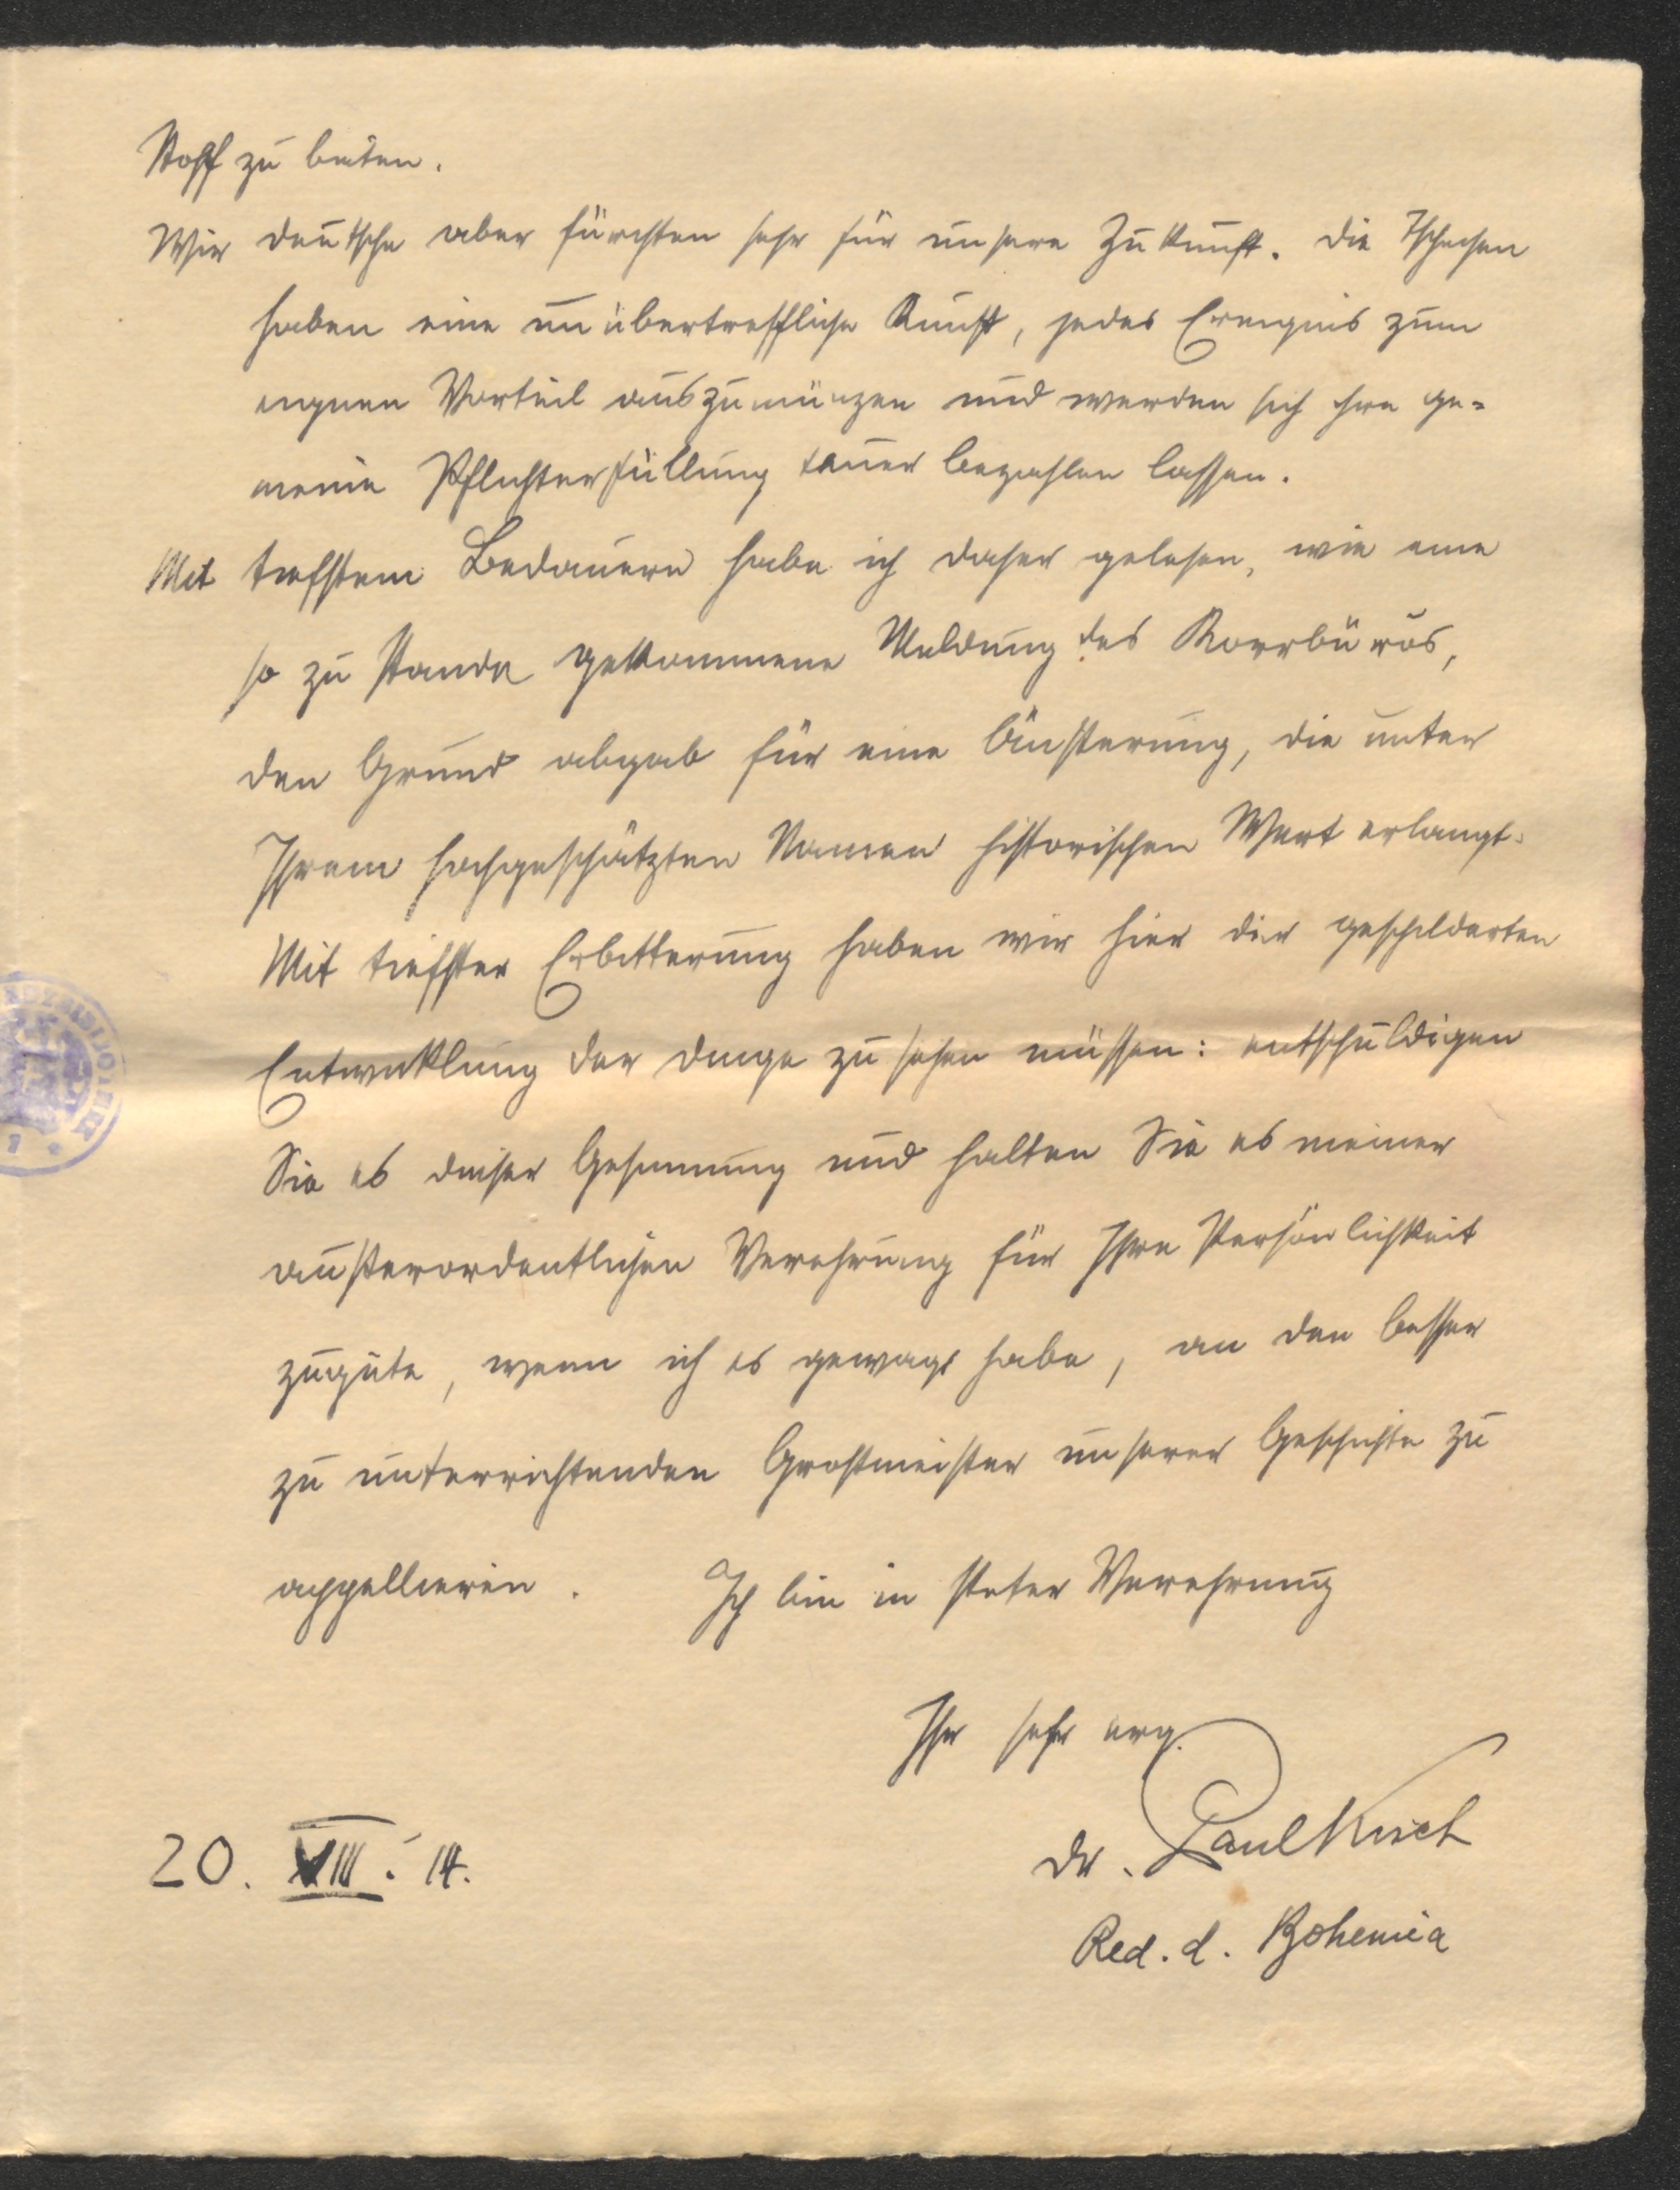 Stoff zu bieten.
Wir Deutsche aber fürchten sehr für unsere Zukunft. Die Tschechen
haben eine unübertreffliche Kunst, jedes Ereignis zum
eignen Vorteil auszumünzen und werden sich ihre ge-
meine Pflichterfüllung teuer bezahlen lassen.
Mit tiefstem Bedauern habe ich daher gelesen, wie eine
so zu Stande gekommene Meldung des Korrbüros,
den Grund abgab für eine Äußerung, die unter
Ihrem hochgeschätzten Namen historischen Wert erlangt.
Mit tiefster Erbitterung haben wir hier der geschilderten
Entwicklung der Dinge zusehen müssen: entschuldigen
Sie es dieser Gesinnung und halten Sie es meiner
außerordentlichen Verehrung für Ihre Persönlichkeit
zugute, wenn ich es gewagt habe, an den besser
zu unterrichtenden Großmeister unserer Geschichte zu
appellieren. Ich bin in steter Verehrung
Ihr sehr erg.
Dr. Paul Kisch
20. VIII. 14.
Red. d. Bohemia